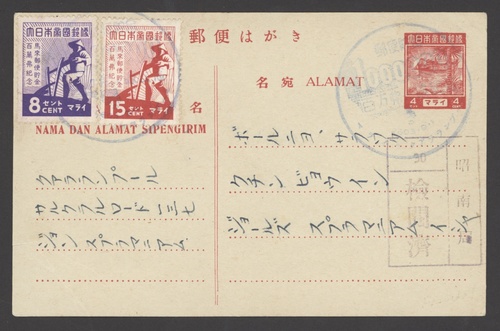 大日本帝國郵便
馬來郵便貯金
百萬弗紀念
8 セント CENT マライ
大日本帝國郵便
馬來郵便貯金
百萬弗紀念
15 セント CENT マライ
郵便はがき
名宛 ALAMAT
大日本帝國郵便
4 マライ 4
名
NAMA DAN ALAMAT SIPENGIRIM
ボールニヨ、サラワク
クチン ビョウイン
ジョールズ スプラマニアム
クアランプール
サルクラルロード 三七
ジョン スプラマニアム
昭南
30
検閲済